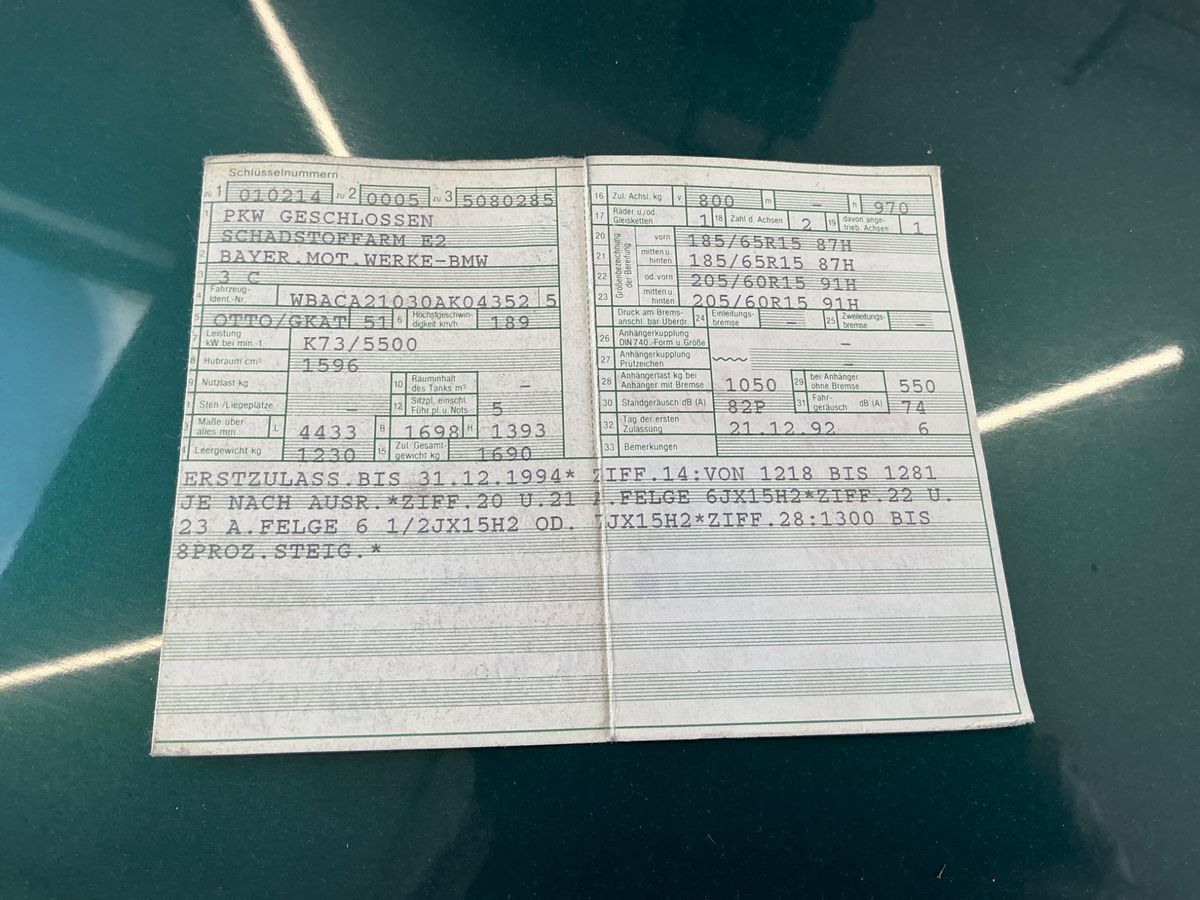 Schlüsselnummern
zu 1 010214 zu 2 0005 zu 3 5080285
1 PKW GESCHLOSSEN
SCHADSTOFFARM E2
2 BAYER.MOT.WERKE-BMW
3 3 C
4 Fahrzeug-Ident.-Nr. WBACA21030AK04352 5
5 OTTO/GKAT 51 6 Höchstgeschwindigkeit km/h 189
7 Leistung kW bei min.-1 K73/5500
8 Hubraum cm³ 1596
9 Nutzlast kg 10 Rauminhalt des Tanks m³ –
Steh-/Liegeplätze – 12 Sitzpl. einschl. Führ.pl. u. Nots. 5
Maße über alles mm L 4433 B 1698 H 1393
Leergewicht kg 1230 15 Zul. Gesamtgewicht kg 1690
16 Zul. Achsl. kg v 800 m – h 970
17 Räder u./od. Gleisketten 1 18 Zahl d. Achsen 2 19 davon angetrieb. Achsen 1
Größenbezeichnung der Bereifung
20 vorn 185/65R15 87H
21 mitten u. hinten 185/65R15 87H
22 od. vorn 205/60R15 91H
23 mitten u. hinten 205/60R15 91H
Druck am Bremsanschl. bar Überdr. 24 Einleitungsbremse – 25 Zweileitungsbremse
26 Anhängerkupplung DIN 740.-Form u. Größe –
27 Anhängerkupplung Prüfzeichen –
28 Anhängerlast kg bei Anhänger mit Bremse 1050 29 bei Anhänger ohne Bremse 550
30 Standgeräusch dB (A) 82P 31 Fahrgeräusch dB (A) 74
32 Tag der ersten Zulassung 21.12.92 6
33 Bemerkungen
ERSTZULASS.BIS 31.12.1994* ZIFF.14:VON 1218 BIS 1281
JE NACH AUSR.*ZIFF.20 U.21 A.FELGE 6JX15H2*ZIFF.22 U.
23 A.FELGE 6 1/2JX15H2 OD. 7JX15H2*ZIFF.28:1300 BIS
8PROZ.STEIG.*